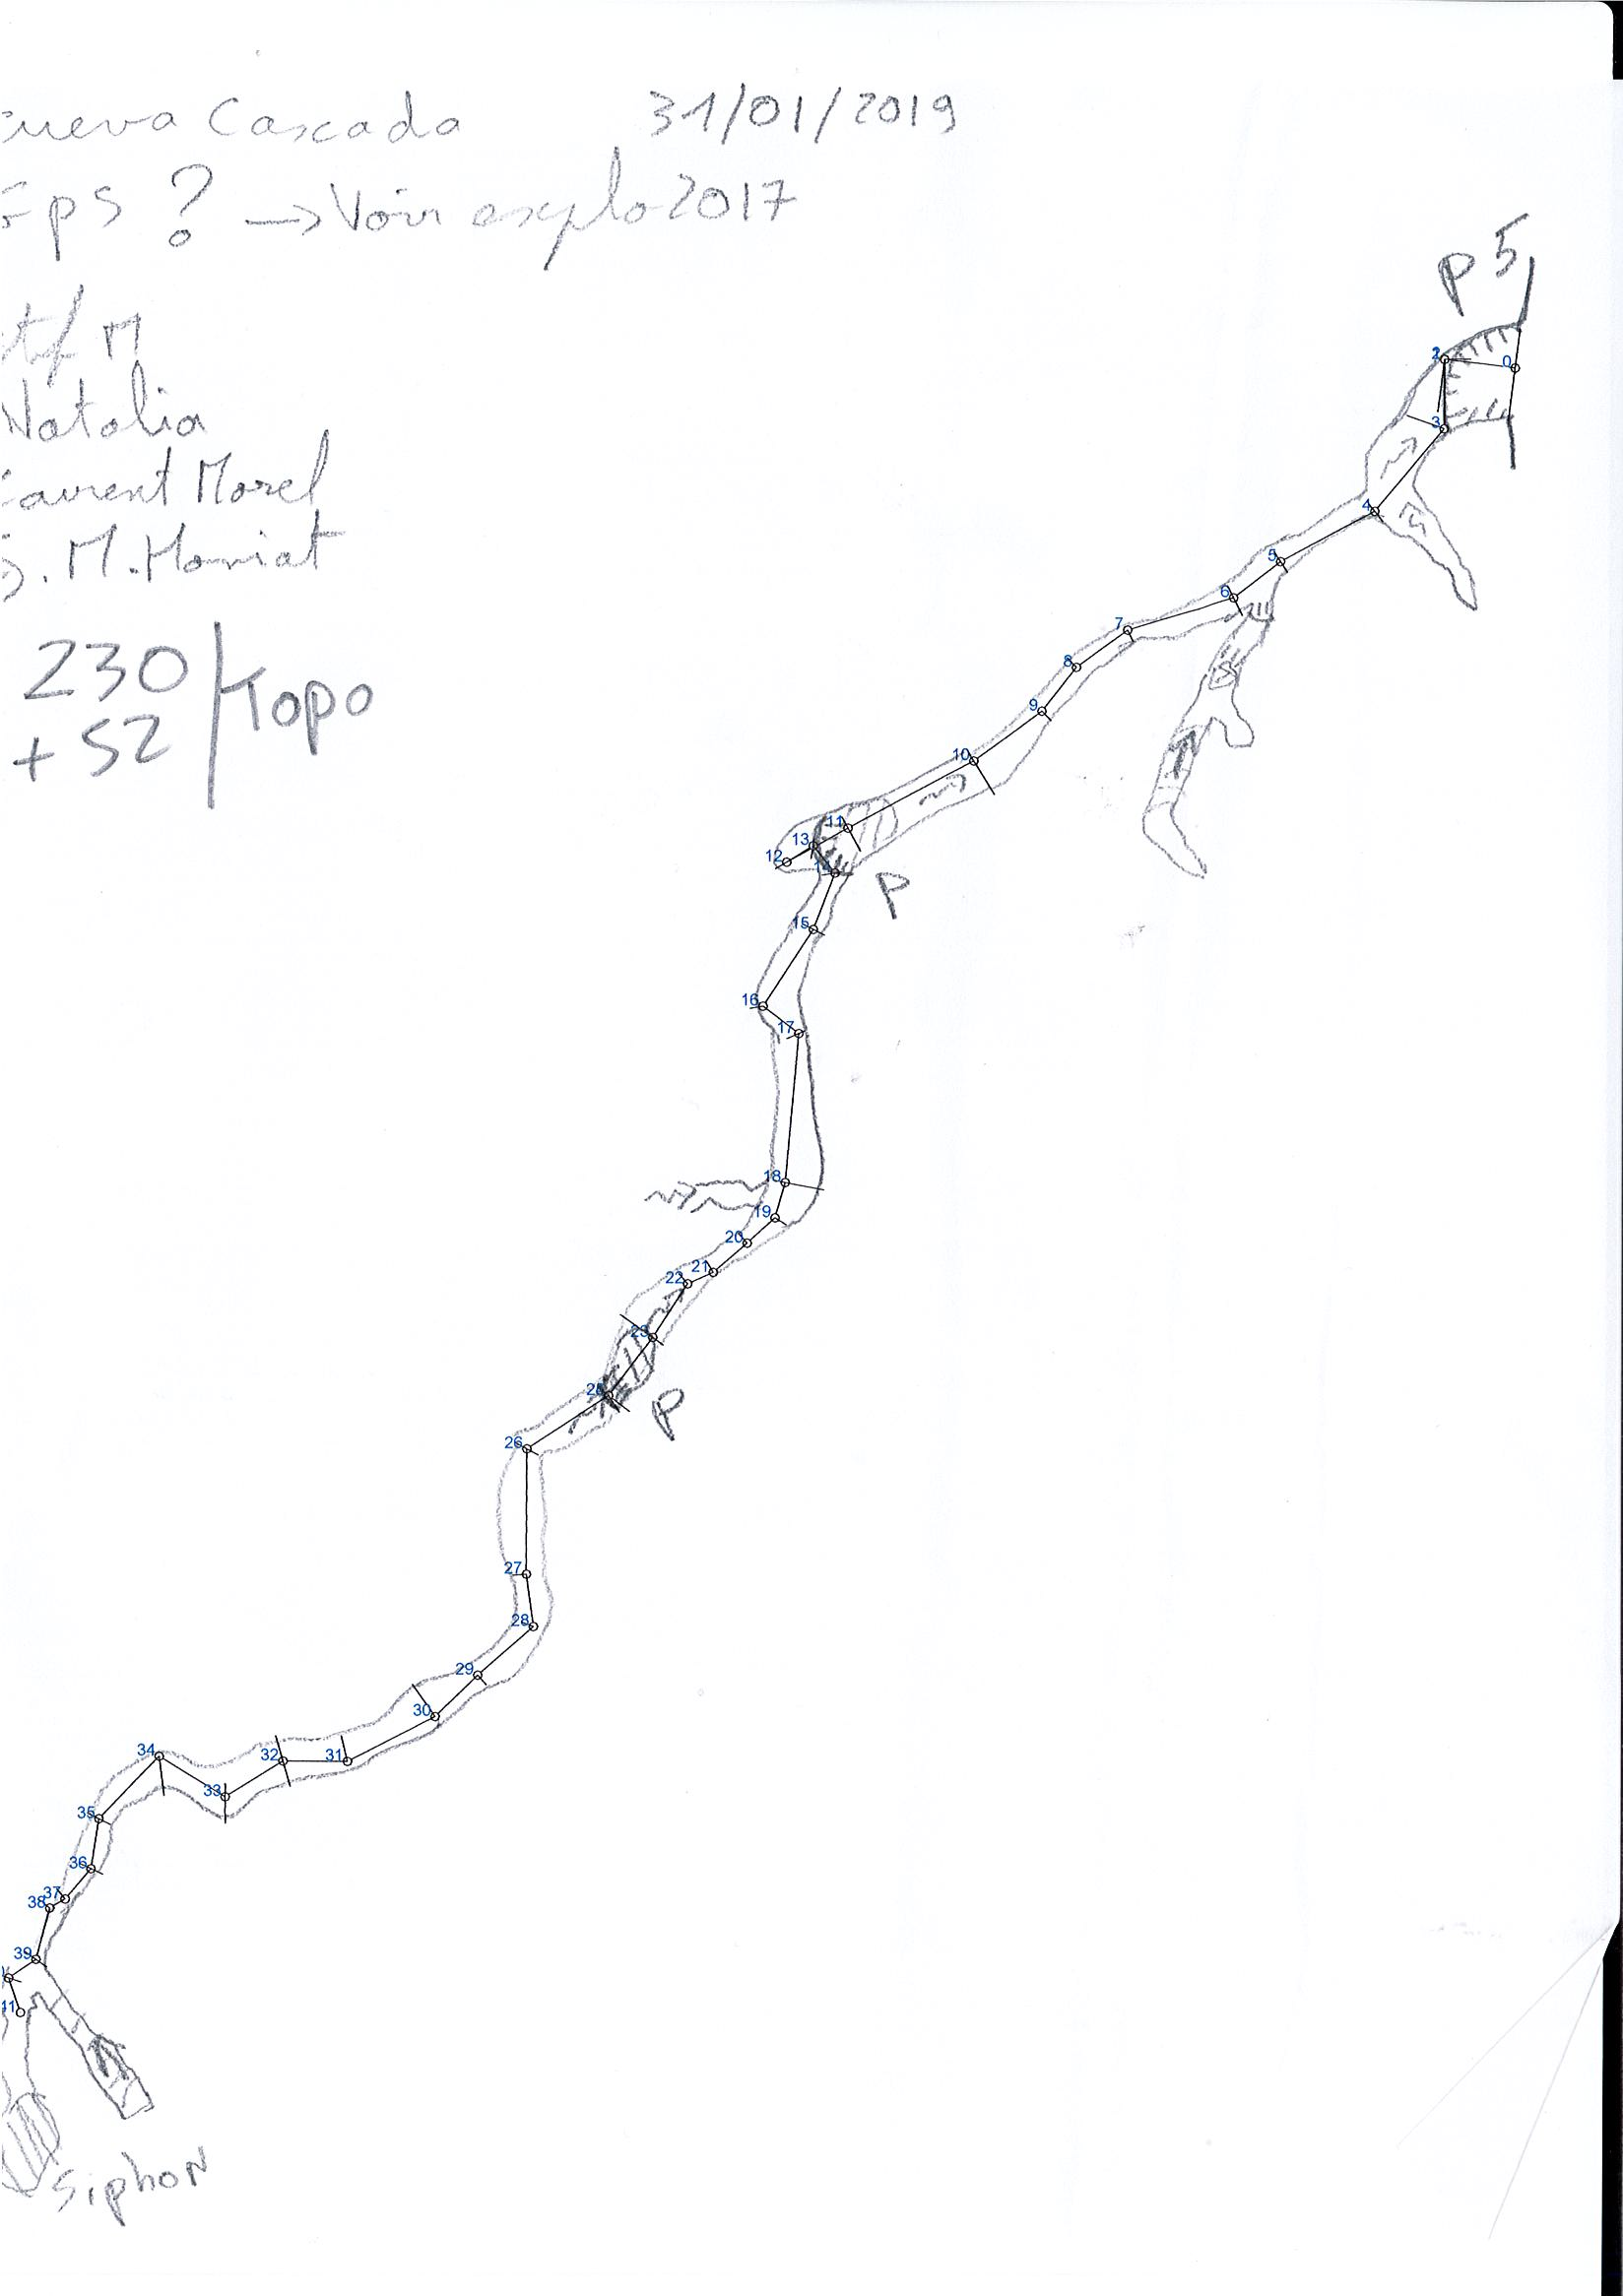 Cueva Cascada 31/01/2019
Gps ? → Voir explo 2017
M
Natalia
Laurent Morel
G. M. Honiat
230 / Topo
+ 52
P 5
0
2
3
4
5
6
7
8
9
10
11
13
12
14
P
15
16
17
18
19
20
21
22
23
P
26
27
28
29
30
31
32
33
34
35
36
37
38
39
11
Siphon